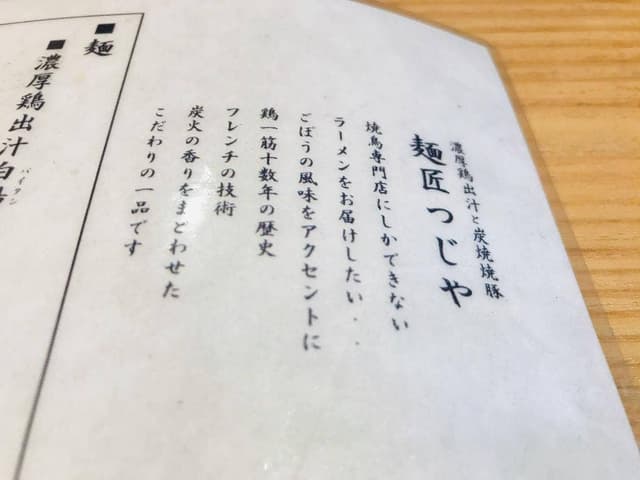 濃厚鶏出汁と炭焼焼豚
麺匠つじや
焼鳥専門店にしかできない
ラーメンをお届けしたい．．
ごぼうの風味をアクセントに
鶏一筋十数年の歴史
フレンチの技術
炭火の香りをまとわせた
こだわりの一品です
■麺
■濃厚鶏出汁白
パイタン